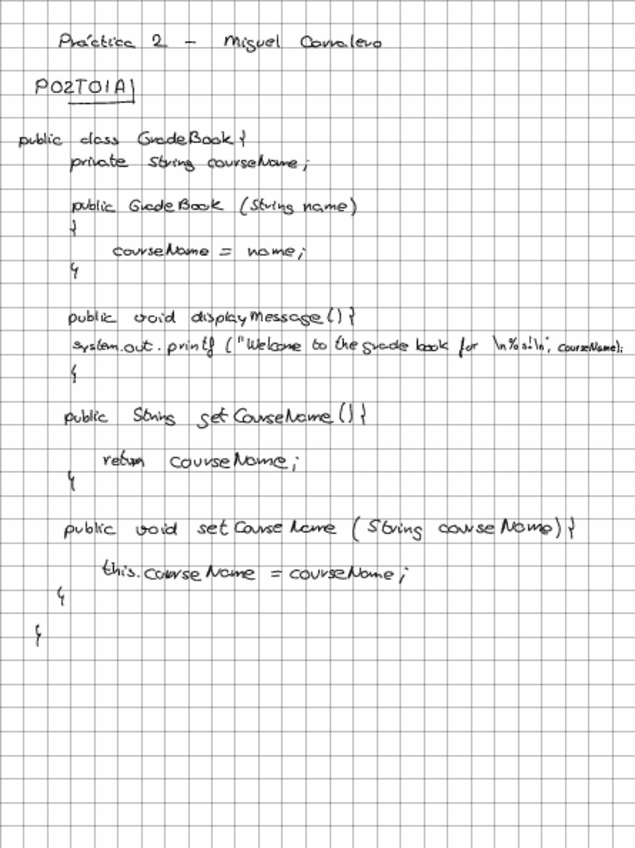 Práctica 2 - Miguel Carralero
P02T01A
public class GradeBook{
private String courseName;
public GradeBook (String name)
{
courseName = name;
}
public void displayMessage(){
system.out.printf ("Welcome to the grade book for \n%s!\n", courseName);
}
public String setCourseName(){
return courseName;
}
public void setCourseName (String courseName){
this.courseName = courseName;
}
}